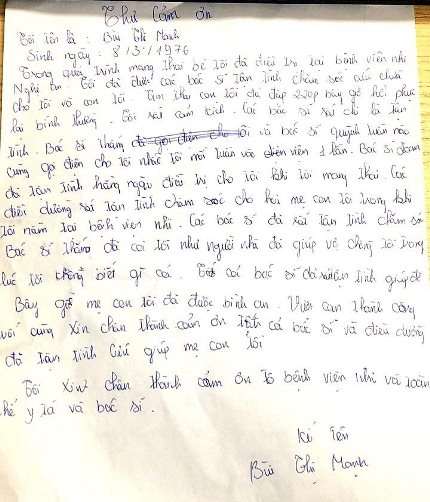 Thư Cảm ơn
Tôi tên là : Bùi Thị Mạnh
Sinh ngày : 8/3/1976
Trong quá trình mang thai bé tôi đã điều trị tại bệnh viên nhi
Nghệ An. Tôi đã được các bác sĩ tân tình chăm sóc cứu chữa
cho tôi và con tôi Tim thai con tôi đã đập 220p bây giờ hồi phục
lại bình thường. Tôi rất cảm kích. Các bác sĩ rất chi là tân
tình. Bác sĩ thăng đã gọi điện cho tôi và bác sĩ quỳnh tuần nào
cũng gọi điện cho tôi nhắc tôi mỗi tuần vào viên 1 lần. Bác sĩ
đã tân tình hằng ngày điều trị cho tôi khi tôi mang thai. Các
điều dưỡng rất tân tình chăm sóc cho hai mẹ con tôi trong khi
tôi nằm tại bệnh viên nhi. Các bác sĩ đã rất tân tình chăm sóc
Bác sĩ thăng đã coi tôi như người nhà đã giúp vợ chồng tôi trong
lúc tôi không biết gì cả. các bác sĩ đã tân tình giúp đỡ
Bây giờ mẹ con tôi đã được bình an. can thành công
cuối cùng xin chân thành cảm ơn tất cả bác sĩ và điều dưỡng
đã tân tình cứu giúp mẹ con tôi
Tôi xin chân thành cảm ơn tơ bệnh viện nhi và toàn
thể y tá và bác sĩ.
Kí tên
Bùi Thị Mạnh